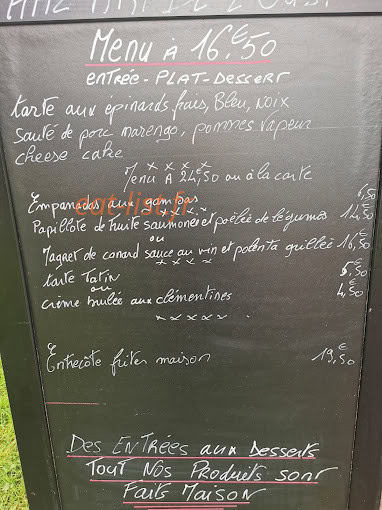 Menu à 16.€50
ENTRÉE - PLAT - DESSERT
tarte aux épinards frais, Bleu, noix
Sauté de porc marengo, pommes vapeur
cheese cake
x x x x
Menu A 24,50 ou à la carte
Empanadas aux gambas 6,50
eat-list.fr
x x x x
Papillote de truite saumonée et poêlée de légumes 14,50
ou
Magret de canard sauce au vin et polenta grillée 16,50
x x x x
tarte Tatin 5,50
ou
crème brulée aux clémentines 4,50
x x x x x
Entrecôte frites maison 19,€50
DES ENTRÉES aux DESSERTS
TOUT NOS PRODUITS SONT
FAITS MAISON